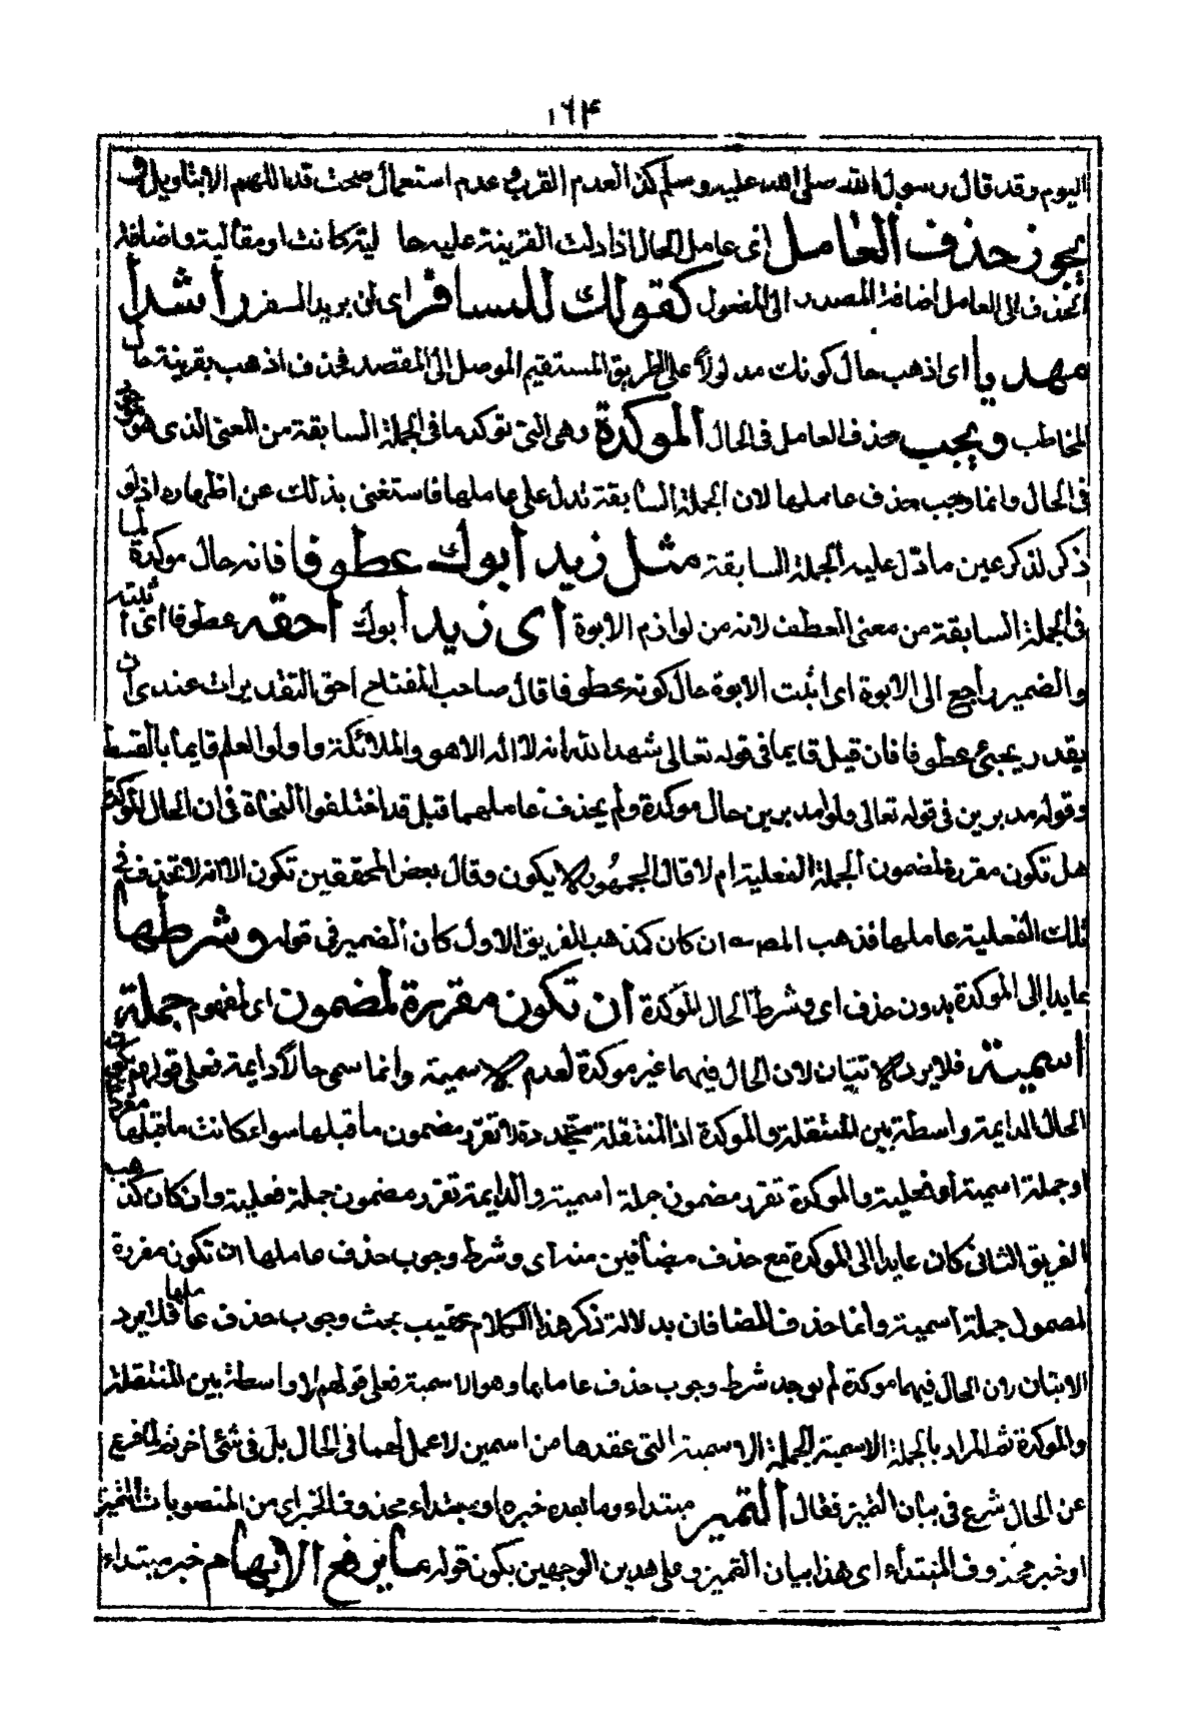 ١٦٤
اليوم وقد قال رسول الله صلى الله عليه وسلم كذا لعدم القرب وعدم استعمال صحت قدما اللهم الا بتاويل و
يجوز حذف العامل اى عامل الحال اذا دلت القرينة عليه حا لية كانت او مقالية واضافة
الحذف الى العامل اضافة المصدر الى المفعول كقولك للمسافر اى لمن يريد السفر راشدا
مهديا اى اذهب حال كونك مدلولا على الطريق المستقيم الموصل الى المقصد فحذف اذهب بقرينة حال
المخاطب ويجب حذف العامل فى الحال المؤكدة وهى التى توكد ما فى الجملة السابقة من المعنى الذى هو
فى الحال وانما وجب حذف عاملها لان الجملة السابقة تدل على عاملها فاستغنى بذلك عن اظهاره اذ لو
ذكر لذكر عين ما دل عليه الجملة السابقة مثل زيد ابوك عطوفا فانه حال موكدة لما
فى الجملة السابقة من معنى العطف لانه من لوازم الابوة اى زيد ابوك احقه عطوفا اى اثبته
والضمير راجع الى الابوة اى اثبت الابوة حال كونه عطوفا قال صاحب المفتاح احق التقديرات عندى ان
يقدر يجئ عطوفا فان قيل قايما فى قوله تعالى شهد الله انه لا اله الا هو والملائكة واولوا العلم قايما بالقسط
وقوله مدبرين فى قوله تعالى ولوا مدبرين حال موكدة ولم يحذف عاملهما قبل قد اختلفوا النحاة فى ان الحال الموكدة
هل تكون مقررة لمضمون الجملة الفعلية ام لا قال الجمهور لا يكون وقال بعض المحققين تكون الا انه لا تحذف فى
تلك الفعلية عاملها فذهب المصـ ان كان كمذهب الفريق الاول كان الضمير فى قوله وشرطها
عايدا الى الموكدة بدون حذف اى وشرط الحال الموكدة ان تكون مقررة لمضمون اى لمفهوم جملة
اسمية فلا يرد الاتيان لان الحال فيهما غير موكدة لعدم الاسمية وانما سمى حالا دايمة فعلى قولهم
الحال الدايمة واسطة بين المنتقلة والموكدة اذ المنتقلة متجددة لا تقرر مضمون ما قبلها سواء كانت ما قبلها مفردا
او جملة اسمية او فعلية والموكدة تقرر مضمون جملة اسمية والدايمة تقرر مضمون جملة فعلية وان كان كمذهب
الفريق الثانى كان عايدا الى الموكدة مع حذف مضافين منه اى وشرط وجوب حذف عاملها ان تكون مقررة
لمضمون جملة اسمية وانما حذف المضافان بدلالة ذكر هذا الكلام عقيب بحث وجوب حذف عاملها فلا يرد
الاتيان لان الحال فيهما موكدة لم يوجد شرط وجوب حذف عاملها وهو الاسمية فعلى قولهم لا واسطة بين المنتقلة
والموكدة ثم المراد بالجملة الاسمية الجملة الاسمية التى عقدها من اسمين لا عمل لهما فى الحال بل فى شئ اخر ثم لما فرغ
عن الحال شرع فى بيان التميز فقال التميز مبتداء وما بعده خبره او مبتداء محذوف الخبر اى من المنصوبات التميز
او خبر محذوف المبتداء اى هذا بيان التميز وعلى هدين الوجهين يكون قوله ما يرفع الابهام خبر مبتداء